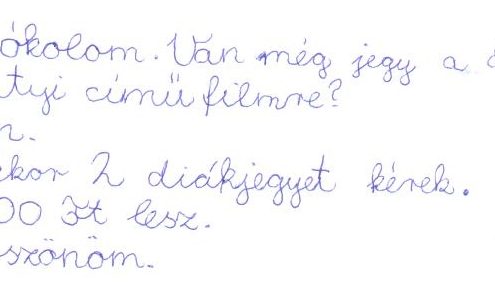 ókolom. Van még jegy a
tyi című filmre?
n.
kor 2 diákjegyet kérek.
00 Ft lesz.
szönöm.